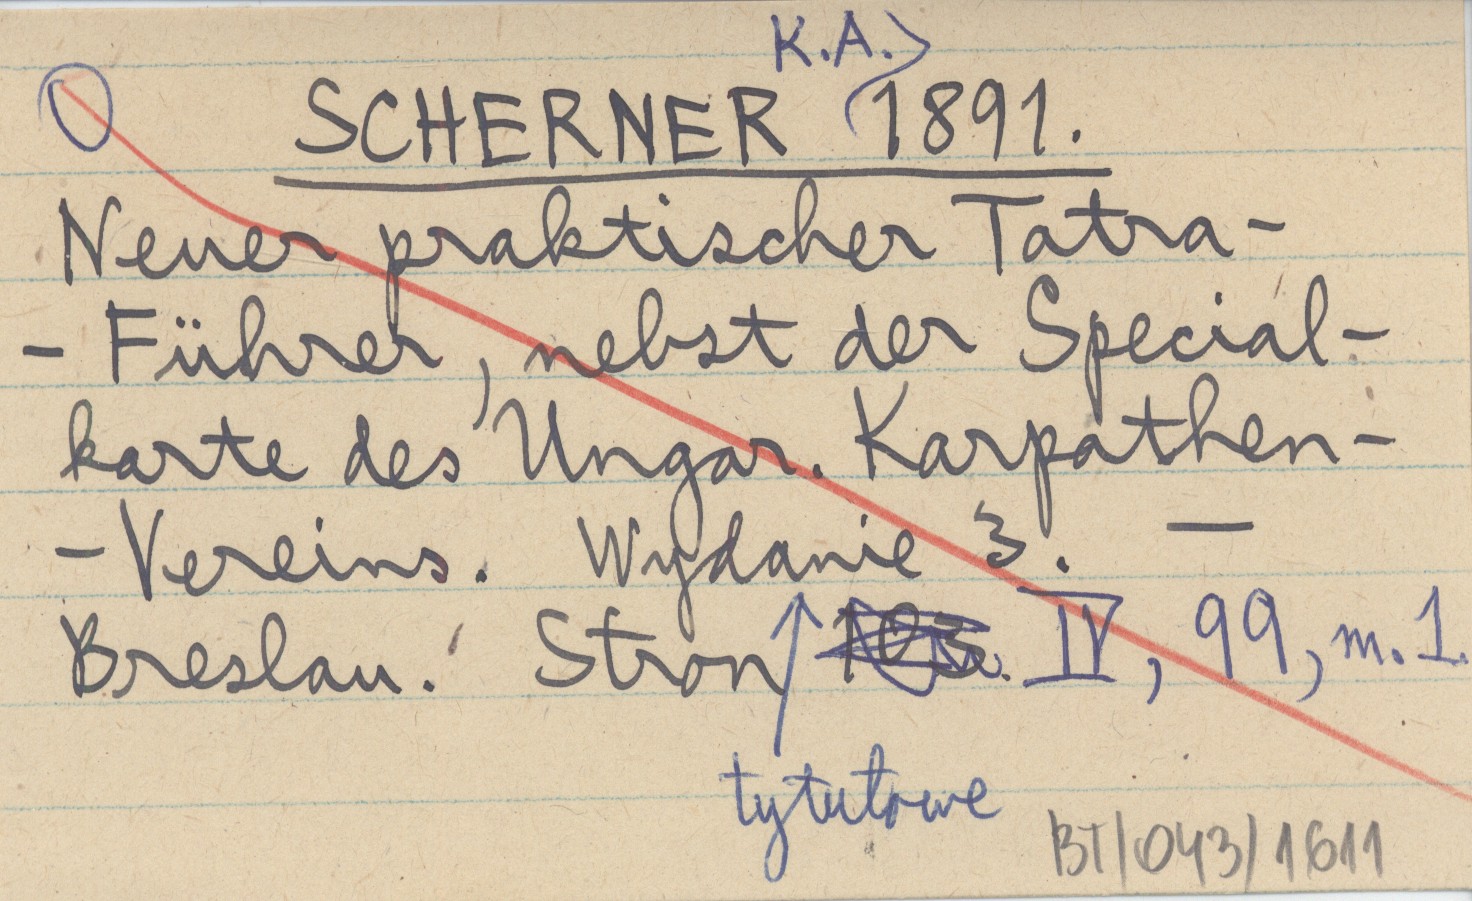 K.A.
SCHERNER 1891.
Neuer praktischer Tatra-
- Führer, nebst der Special-
karte des Ungar. Karpathen-
- Vereins. Wydanie 3. —
Breslau. Stron IV, 99, m. 1.
tytułowe
BT/043/1611